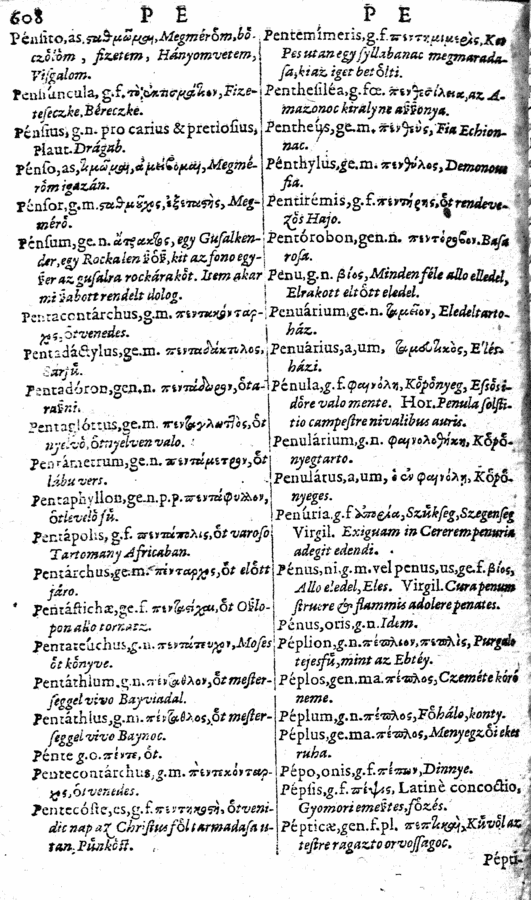 608 P E P E
Pénſito,as,ςαθμῶμαι,Megmérȍm,bȍ-
czȕlȍm, fizetem, Hányomvetem,
Viſgalom.
Penſiuncula, g.f. Fize-
teſeczke,Béreczke.
Pénſius,g.n. pro carius & pretioſius,
Plaut.Drágab.
Pénſo,as, Megmé-
rȍm igazán.
Pénſor,g.m. Meg-
mérȍ.
Pénſum,ge.n. ἄτρακτος, egy Guſalken-
der,egy Rockalen kit az fono egy-
ſzer az guſalra rockárakȍt. Item akar
mi ſzabott rendelt dolog.
Pentacontárchus,g.m. πεντακόνταρ-
χος,ȍtvenedes.
Pentadáctylus,ge.m. πενταδάκτυλος,
Pentadóron,gen.n. πεντάδωρον,ȍta-
Pentaglóttus,ge.m. πεντάγλωττος,ȍt
nyelvȍ,ȍtnyelven valo.
Pentámetrum,ge.n. πεντάμετρον,ȍt
lábu vers.
Pentaphyllon,ge.n.p.p. πεντάφυλλον,
ȍtlevelȍ fȕ.
Pentápolis, g.f. πεντάπολις,ȍt varoſo
Tartomany Africaban.
Pentárchus,ge.m. πένταρχος,ȍt elȍtt
járo.
Pentáſtichæ,ge.f. ȍt Oſzlo-
pon allo tornatz.
Pentateúchus,g.n. πεντάτευχον,Moſes
ȍt kȍnyve.
Pentáthlum,g.n. πένταθλον,ȍt meſter-
ſeggel vivo Bayviadal.
Pentáthlus,g.m. πένταθλος,ȍt meſter-
ſeggel vivo Baynoc.
Pénte g.o. πέντε, ȍt.
Pentecontárchus, g.m. πεντεκόνταρ-
χος,ȍtvenedes.
Pentecóſte,es,g.f. πεντηκοστὴ, ȍtveni-
dic nap az Chriſtus fȍltamadaſa u-
tan. Pȕnkȍſt.
Pentemímeris,g.f. πεντημιμερὶς, Ket
Pes utan egy ſyllabanac megmarada-
ſa,kiaz iget betȍlti.
Pentheſiléa,g.fœ. πενθεσίλεια,az A-
mazonoc kiralyne aſzſzonya.
Pentheús,ge.m. πενθεύς, Fia Echion-
nac.
Pénthylus,ge.m. πένθύλος, Demonous
fia.
Pentirémis, g.f. πεντήρης, ȍt rendeve-
zȍs Hajo.
Pentórobon,gen.n. πεντόροβον.Baſa
roſa.
Pénu,g.n. βίος, Mindenféle allo elledel,
Elrakott eltȍtt eledel.
Penuárium,ge.n. ταμεῖον, Eledeltarto-
ház.
Penuárius,a,um, Elés
házi.
Pénula,g.f. φαινόλη, Kȍpȍnyeg, Eſsȍsi-
dȍre valo mente. Hor. Penula ſolſti-
tio campeſtre nivalibus auris.
Penulárium,g.n. φαινολοθήκη, Kȍpȍ-
nyegtarto.
Penulátus,a,um, ὁ ἐν φαινόλη, Kȍpȍ-
nyeges.
Penúria,g.f ἀπορία, Szȕkſeg,Szegenſeg
Virgil. Exiguam in Cererem penuria
adegit edendi.
Pénus,ni,g.m.vel penus,us,ge.f. βίος,
Allo eledel, Eles. Virgil. Cura penum
ſtruere & flammis adolere penates.
Pénus,oris,g.n. Idem.
Péplion,g.n. πέπλιον, πεπλὶς, Purgalo
tejesfȕ,mint az Ebtéy.
Péplos,gen.ma. πέπλος, Czeméte kóró
neme.
Péplum,g.n. πέπλος, Fȍhálo,konty.
Péplus,ge.ma. πέπλος, Menyegzȍi ekes
ruha.
Pépo,onis,g.f. πέπων, Dinnye.
Pépſis,g.f. πέψις, Latinè concoctio,
Gyomori emeſztes,fȍzés.
Pépticæ,gen.f.pl. πεπτικαὴ, Kȕvȍl az
teſtre ragazto orvoſſagoc.
Pépti-